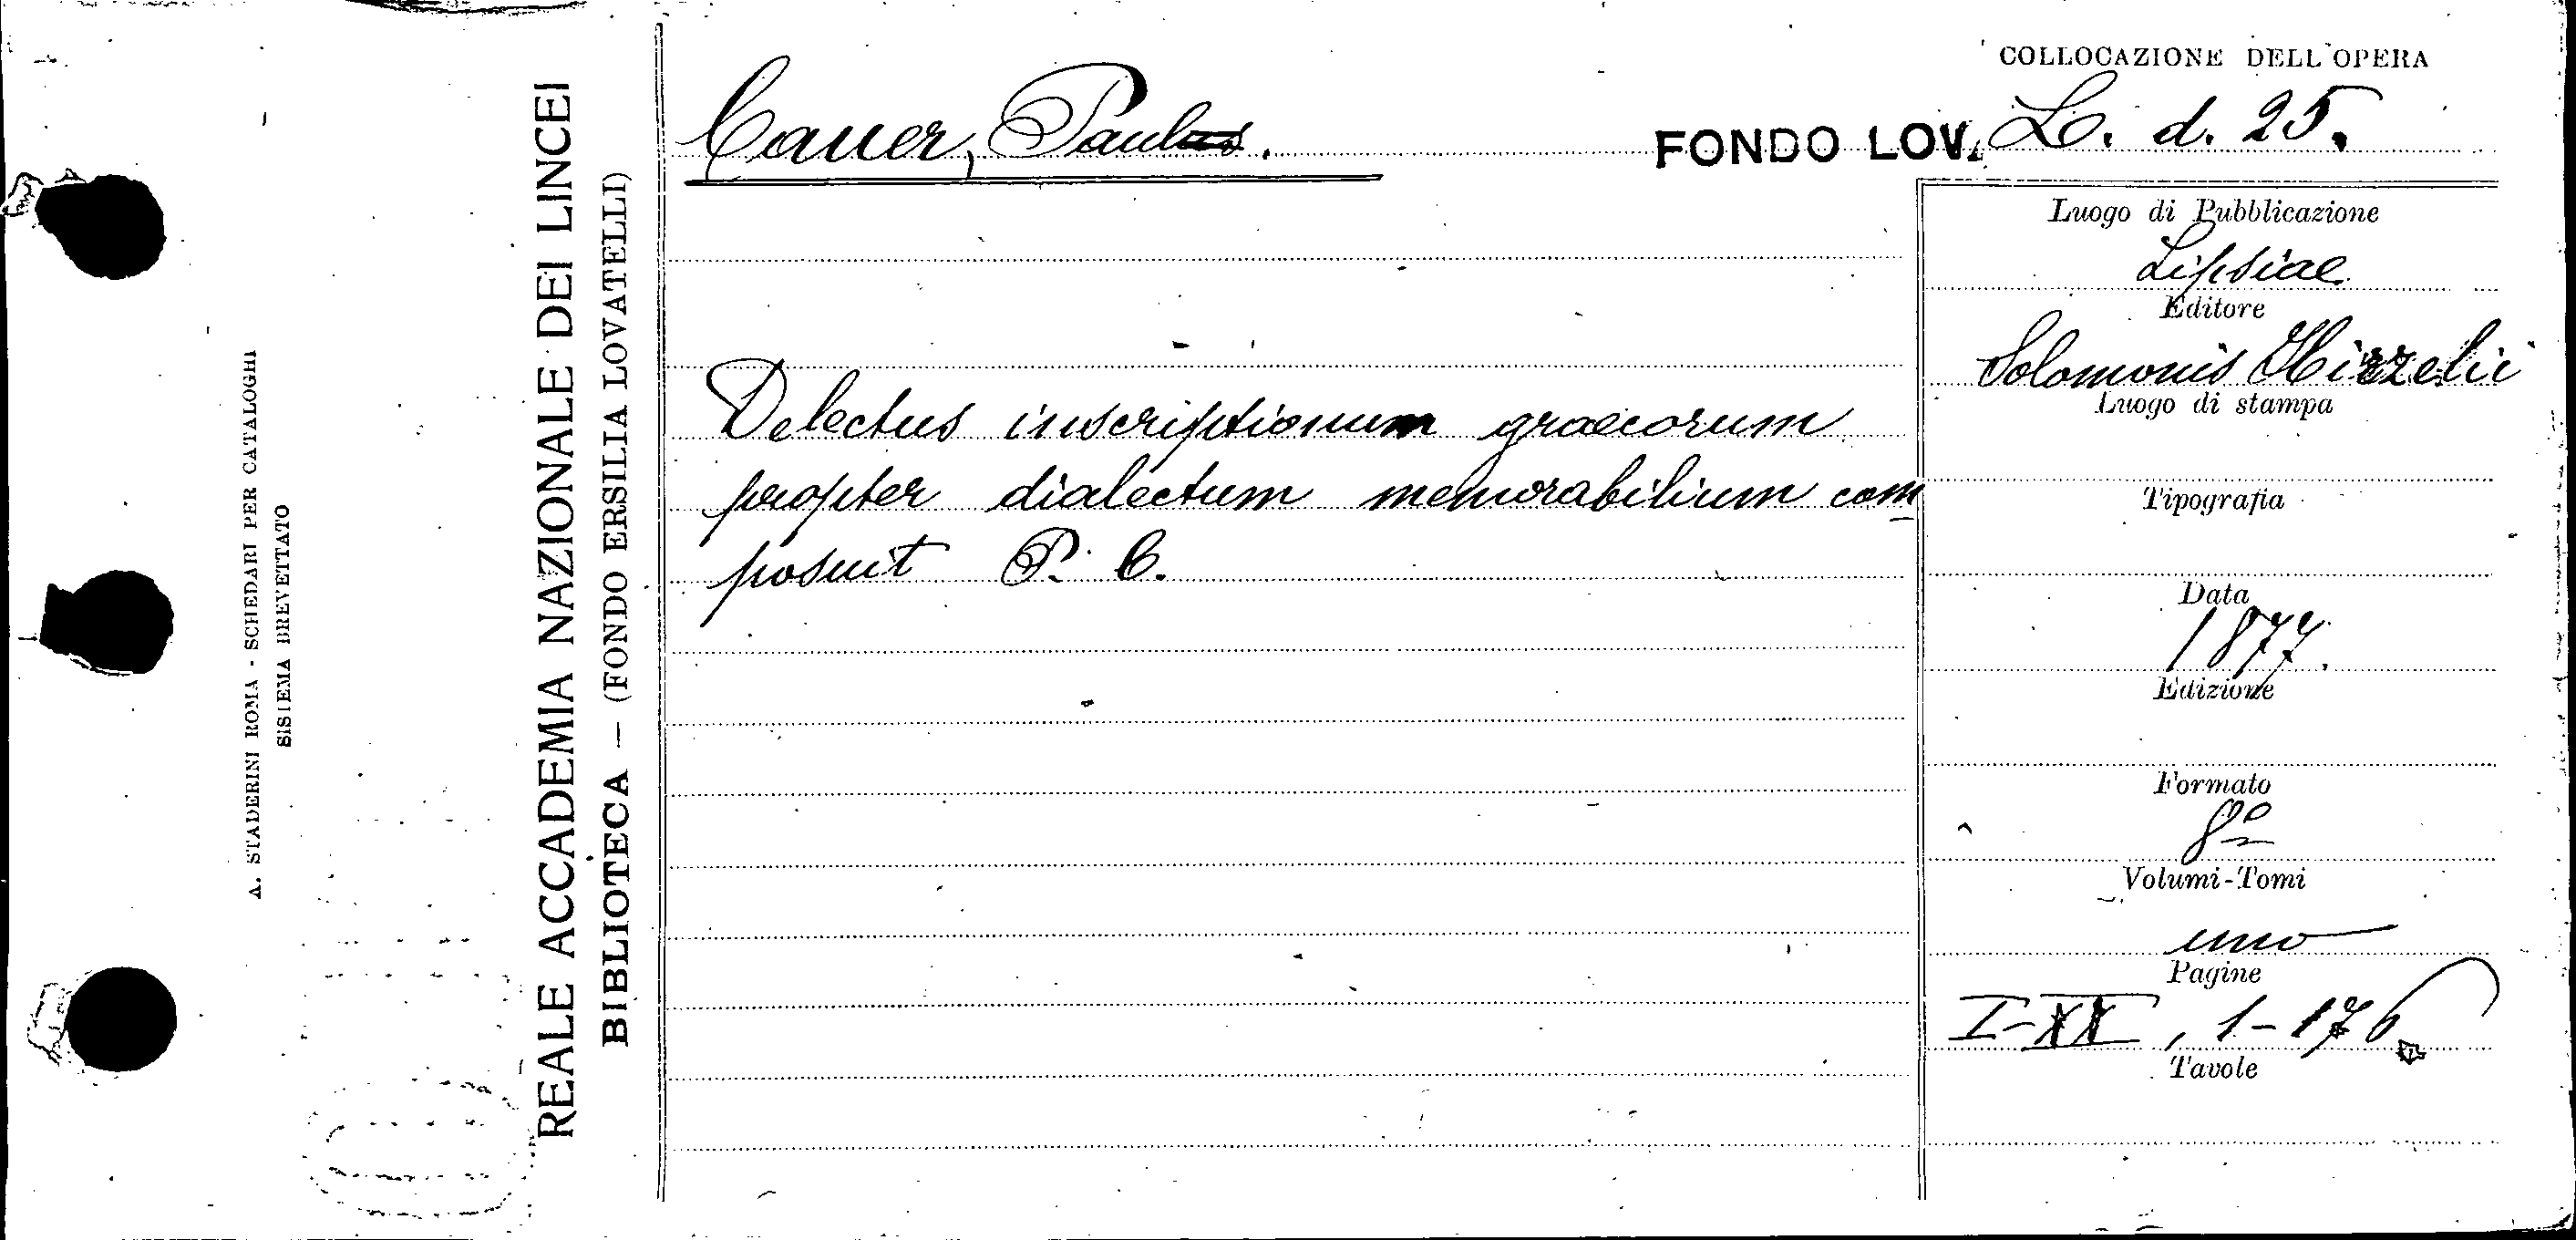 COLLOCAZIONE DELL'OPERA
Cauer, Paulus.
FONDO LOV. L. d. 25.
Luogo di Pubblicazione
Lipsiae
Editore
Solomonis Hirzelii
Luogo di stampa
Delectus inscriptionum graecorum
propter dialectum memorabilium com
posuit P. C.
Tipografia
Data
1877.
Edizione
Formato
8º
Volumi-Tomi
uno
Pagine
I-XX, 1-176
Tavole
REALE ACCADEMIA NAZIONALE DEI LINCEI
BIBLIOTECA — (FONDO ERSILIA LOVATELLI)
A. STADERINI ROMA - SCHEDARI PER CATALOGHI
SISTEMA BREVETTATO